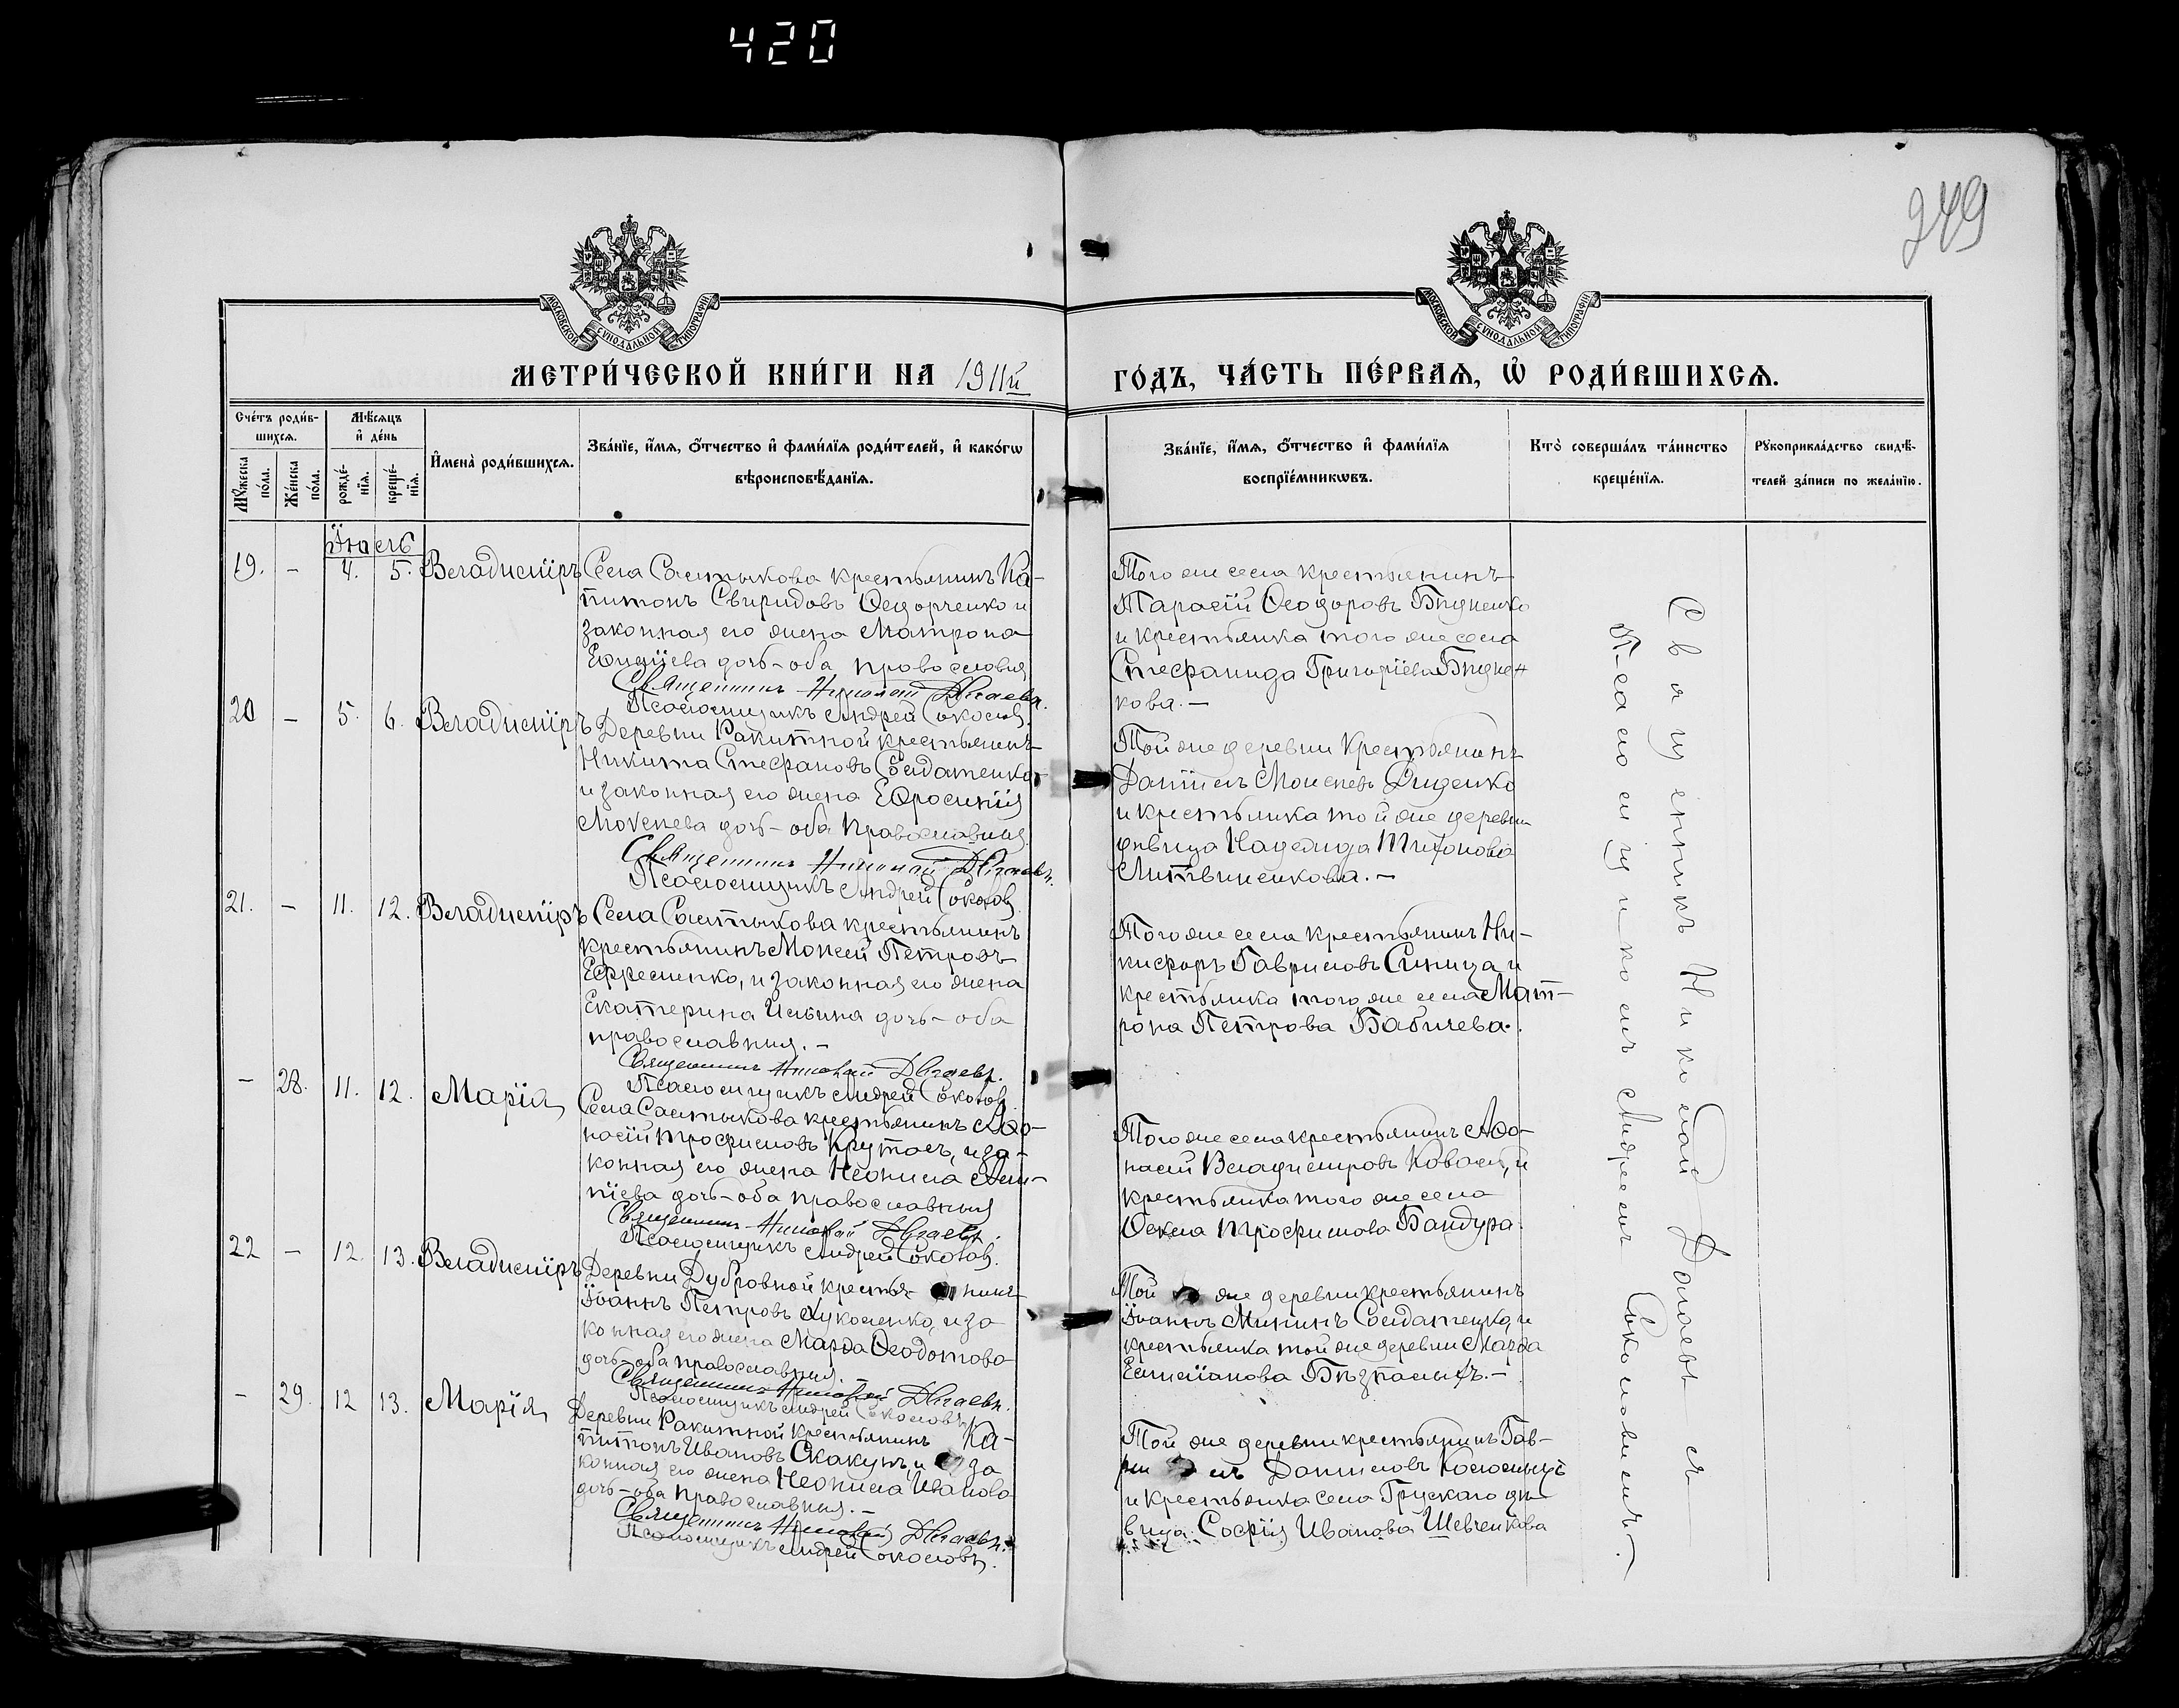 420
249
МОСКОВСКОЙ СѴНОДАЛЬНОЙ ТИПОГРАФІИ
МОСКОВСКОЙ СѴНОДАЛЬНОЙ ТИПОГРАФІИ
МЕТРИ́ЧЕСКОЙ КНИ́ГИ НА 1911й
ГО́ДЪ, ЧА́СТЬ ПЕ́РВАЯ, Ѡ҆ РОДИ́ВШИХСЯ.
Сче́тъ роди́в-
шихся.
Мѣ́сяцъ
и҆ де́нь
Мꙋ́жеска по́ла.
Же́нска по́ла.
рожде́-
нїя.
креще́-
нїя.
И҆мена̀ роди́вшихся.
Зва́нїе, и҆́мя, ѻ҆́тчество и҆ фами́лїя роди́телей, и҆ како́гѡ
вѣроисповѣ́данїя.
Зва́нїе, и҆́мя, ѻ҆́тчество и҆ фами́лїя
воспрїе́мникѡвъ.
Кто̀ соверша́лъ та́инство
креще́нїя.
Рꙋкоприкла́дство свидѣ́-
телей за́писи по жела́нїю.
Іюль
19. - 4. 5. Владиміръ
Села Салтыкова крестьянинъ Ка-
питонъ Свиридовъ Ѳедорченко и
законная его жена Матрона
дочь - оба православныя
Священникъ Николай
Псаломщикъ Андрей Соколовъ
Того же села крестьянинъ
Тарасій Ѳеодоровъ Бѣдненко
и крестьянка того же села
Стефанида Григоріева Бѣднен
кова. -
20 - 5. 6. Владиміръ
Деревни Ракитной крестьянинъ
Никита Стефановъ Солдатенко
и законная его жена Ефросинія
Моѵсеева дочь - оба православныя
Священникъ Николай
Псаломщикъ Андрей Соколовъ
Той же деревни крестьянинъ
Даніилъ Моисеевъ Диденко
и крестьянка той же деревни
дѣвица Надежда Тихонова
Литвиненкова. -
21. - 11. 12. Владиміръ
Села Салтыкова крестьянинъ
крестьянинъ Моисей Петровъ
Ефременко, и законная его жена
Екатерина Ильина дочь - оба
православныя. -
Священникъ Николай
Псаломщикъ Андрей Соколовъ
Того же села крестьянинъ Ни-
кифоръ Гавриловъ Синица и
крестьянка того же села Мат-
рона Петрова Бабичева.
- 28. 11. 12. Марія
Села Салтыкова крестьянинъ Аѳа-
насій Трофимовъ Круталь, и за-
конная его жена Неонила
дочь - оба православныя
Священникъ Николай
Псаломщикъ Андрей Соколовъ
Того же села крестьянинъ Аѳа-
насій Владиміровъ Коваль, и
крестьянка того же села
Ѳекла Трофимова Бандура
22 - 12. 13. Владиміръ
Деревни Дубровной крестья нинъ
Іоаннъ Петровъ Лукоменко, и за
конная его жена Марѳа Ѳеодотова
дочь - оба православныя. -
Священникъ Николай
Псаломщикъ Андрей Соколовъ
Той же деревни крестьянинъ
Іоаннъ Мининъ Солдатенко, и
крестьянка той же деревни Марѳа
Емиліанова Бѣзпалыхъ. -
- 29. 12 13. Марія
Деревни Ракитной крестьянинъ Ка-
питонъ Ивановъ Скакунъ, и за
конная его жена Неонила Иванова
дочь - оба православныя. -
Священникъ Николай
Псаломщикъ Андрей Соколовъ.
Той же деревни крестьянинъ Гав-
ри илъ Даниловъ
и крестьянка села Грузскаго дѣ
вица Софія Иванова Шевченкова
Священникъ Николай
съ
псаломщикомъ Андреемъ Соколовымъ. -